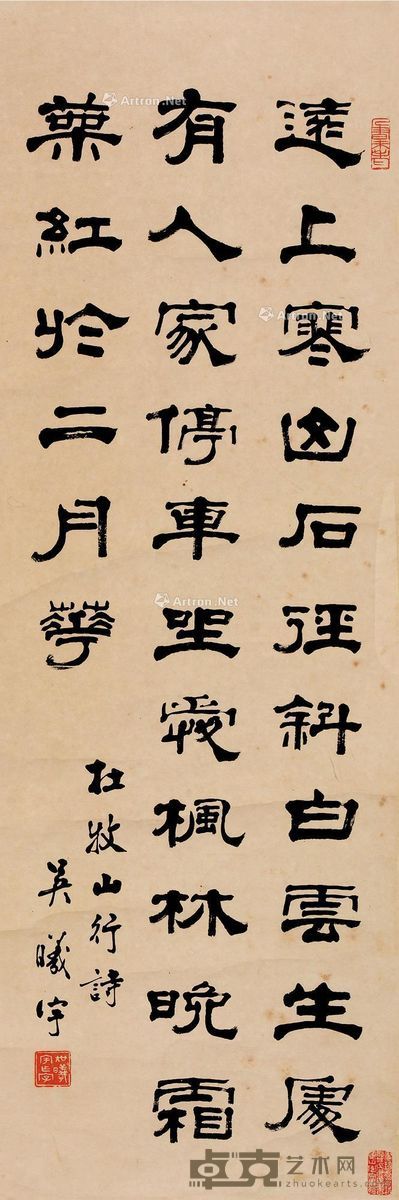 遠上寒山石徑斜白雲生處
有人家停車坐愛楓林晚霜
葉紅於二月華
杜牧山行詩
吳曦宇
Artron.Net
Artron.Net
Artron.Net
Artron.Net
卓克艺术网
zhuokearts.com